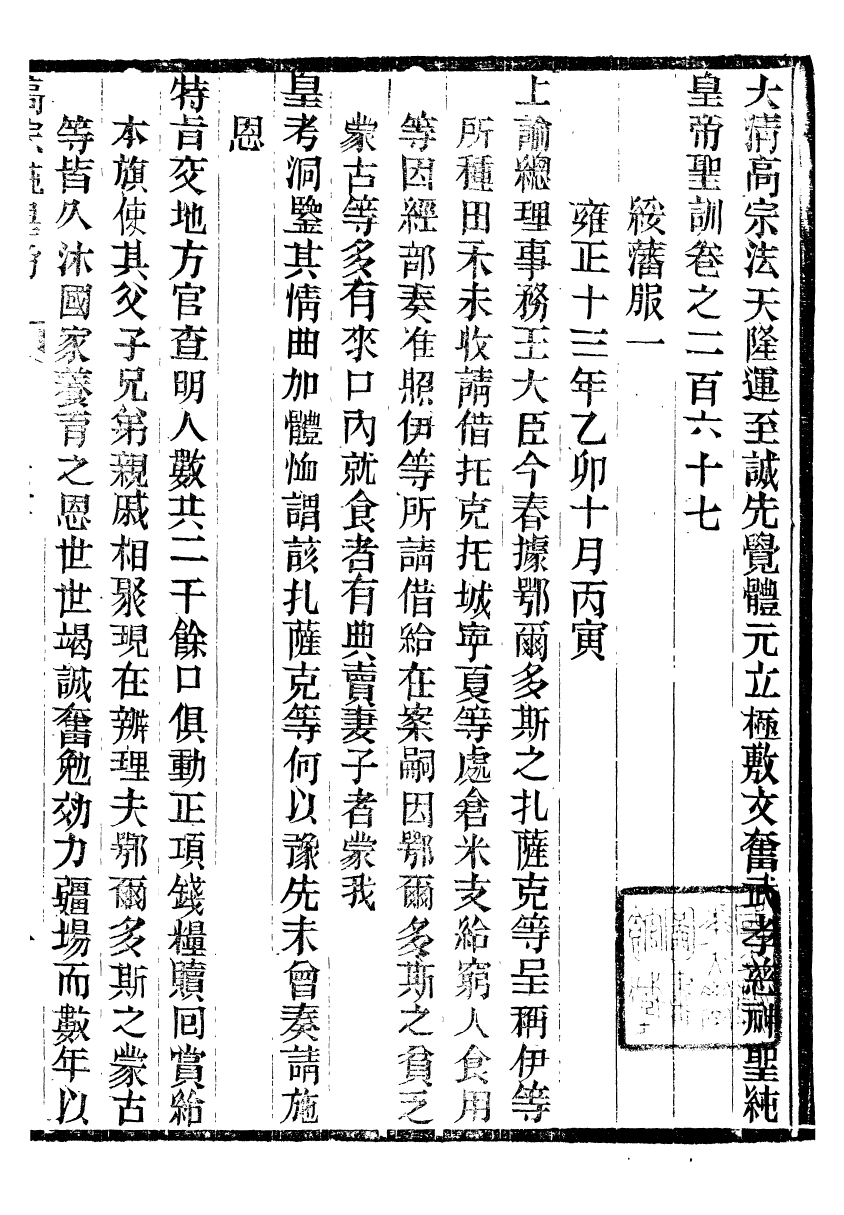 大淸高宗法天隆運至誠先覺體元立極敷文奮武孝慈神聖純
皇帝聖訓卷之二百六十七
綏藩服一
雍正十三年乙卯十月丙寅
上諭總理事務王大臣今春據鄂爾多斯之扎薩克等呈稱伊等
所種田禾未收請借托克托城寧夏等處倉米支給窮人食用
等因經部奏准照伊等所請借給在案嗣因鄂爾多斯之貧乏
蒙古等多有來口內就食者有典賣妻子者蒙我
皇考洞鑒其情曲加體恤謂該扎薩克等何以豫先未曾奏請施
恩
特旨交地方官查明人數共二千餘口俱動正項錢糧贖回賞給
本旗使其父子兄弟親戚相聚現在辦理夫鄂爾多斯之蒙古
等皆久沐國家養育之恩世世竭誠奮勉効力疆場而數年以